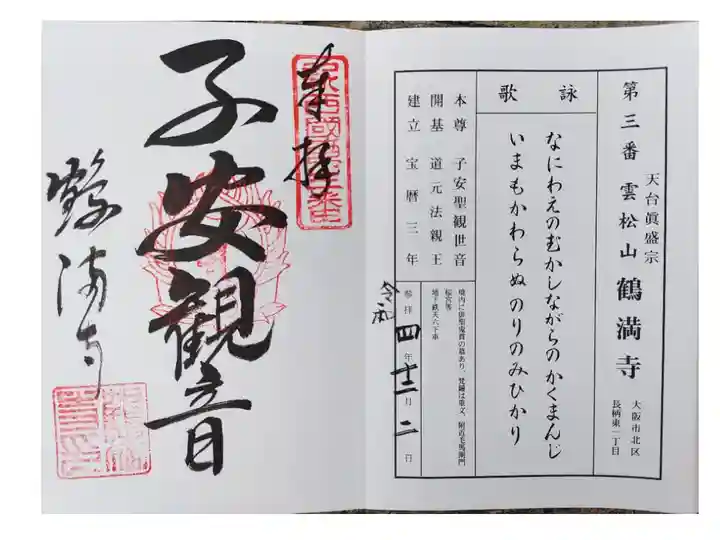 第三番
天台眞盛宗
雲松山 鶴満寺
大阪市北区
長柄東一丁目
詠歌
なにわえのむかしながらのかくまんじ
いまもかわらぬのりのみひかり
本尊 子安聖観世音
開基 道元法親王
建立 宝暦三年
境内に俳聖鬼貫の墓あり、梵鐘は重文、附近毛馬閘門
桜宮等
地下鉄天六下車
令和
参拝 四年 十二月 二日
奉拝
子安観音
鶴満寺